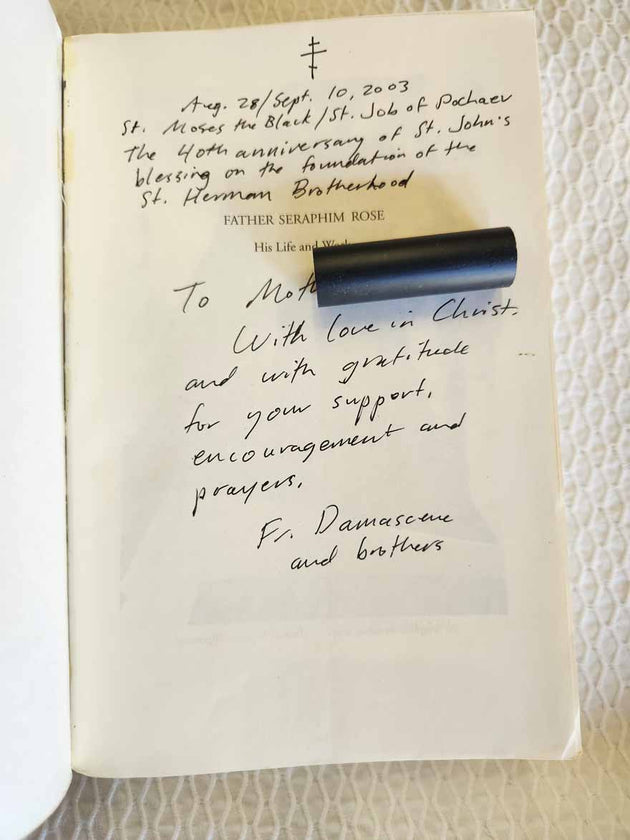 Aug. 28/Sept. 10, 2003
St. Moses the Black/St. Job of Pochaev
The 40th anniversary of St. John's
blessing on the foundation of the
St. Herman Brotherhood
FATHER SERAPHIM ROSE
His Life and
To
With love in Christ.
and with gratitude
for your support,
encouragement and
prayers,
Fr. Damascene
and brothers